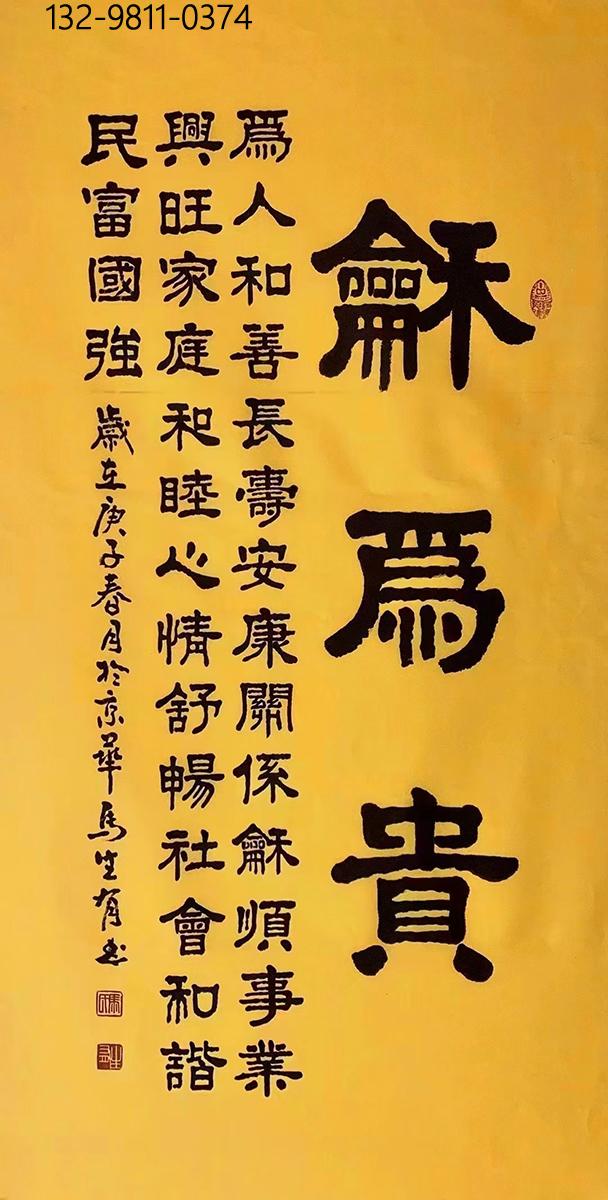 132-9811-0374
龢爲貴
爲人和善長壽安康關係龢順事業
興旺家庭和睦心情舒暢社會和諧
民富國強
歲在庚子春月於京華馬生有書